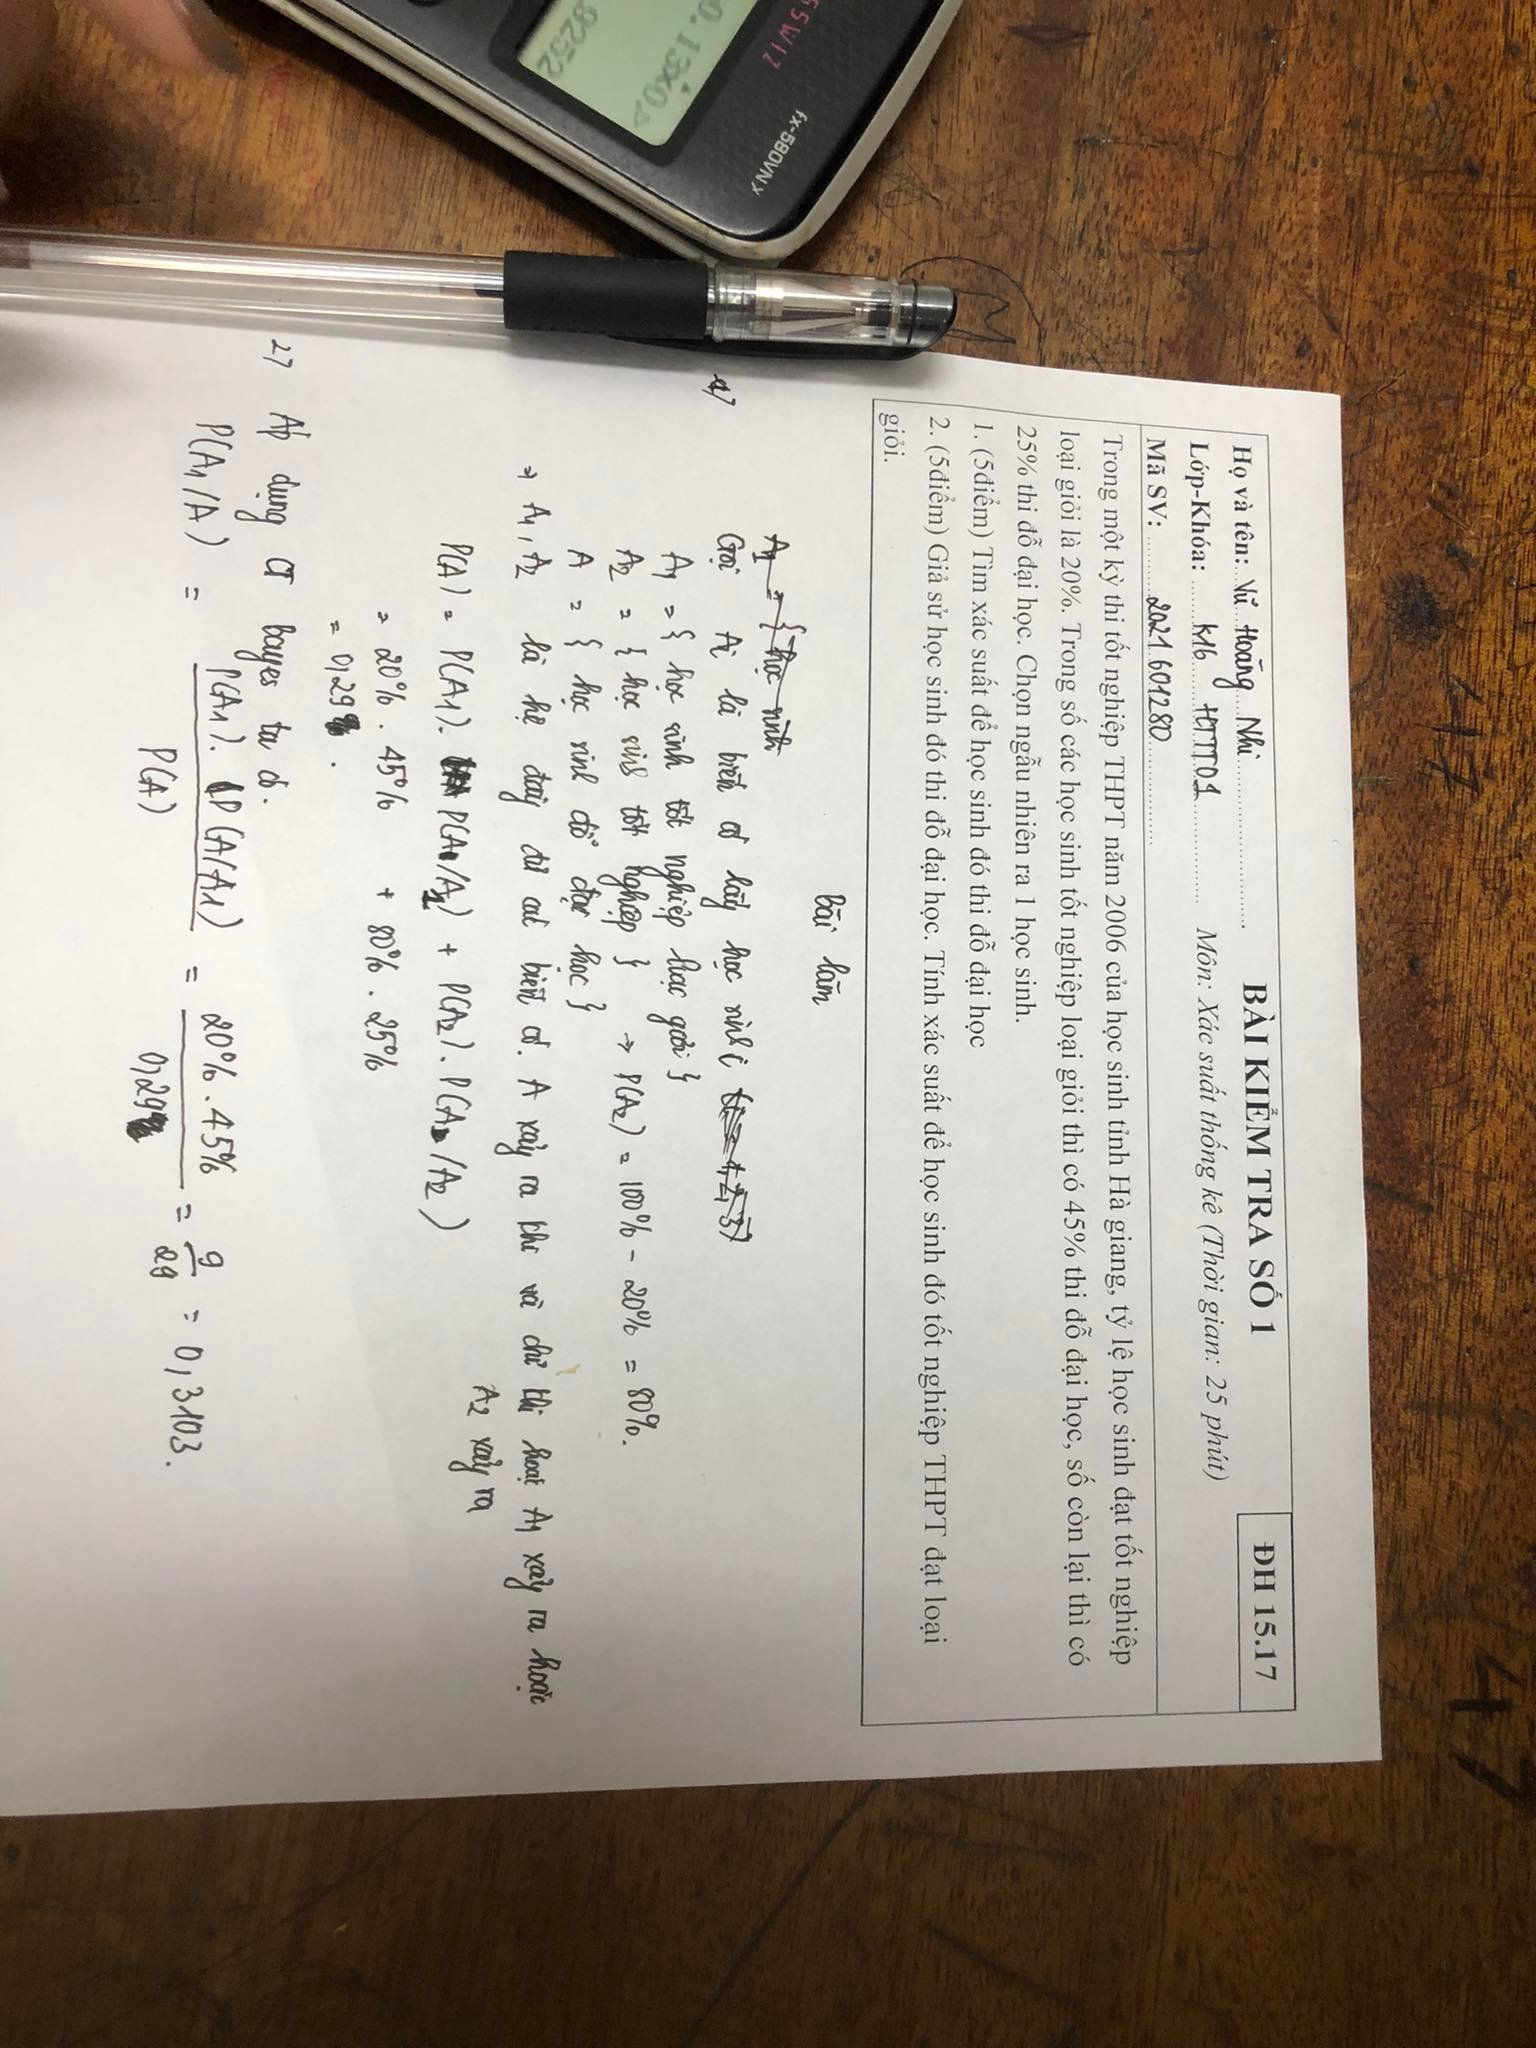 BÀI KIỂM TRA SỐ 1
ĐH 15.17
Họ và tên: Vũ Hoàng Nhi
Môn: Xác suất thống kê (Thời gian: 25 phút)
Lớp-Khóa: K16 HTTT01
Mã SV: 2021601280
Trong một kỳ thi tốt nghiệp THPT năm 2006 của học sinh tỉnh Hà giang, tỷ lệ học sinh đạt tốt nghiệp
loại giỏi là 20%. Trong số các học sinh tốt nghiệp loại giỏi thì có 45% thi đỗ đại học, số còn lại thì có
25% thi đỗ đại học. Chọn ngẫu nhiên ra 1 học sinh.
1. (5điểm) Tìm xác suất để học sinh đó thi đỗ đại học
2. (5điểm) Giả sử học sinh đó thi đỗ đại học. Tính xác suất để học sinh đó tốt nghiệp THPT đạt loại
giỏi.
Bài làm
A1 = { học sinh
a, Gọi Ai là biến cố lấy học sinh i (i = 1,2,3)
A1 = { học sinh tốt nghiệp loại giỏi }
A2 = { học sinh tốt nghiệp } → P(A2) = 100% - 20% = 80%.
A = { học sinh đỗ đại học }
→ A1, A2 là hệ đầy đủ các biến cố. A xảy ra khi và chỉ khi hoặc A1 xảy ra hoặc
A2 xảy ra
P(A) = P(A1). P(A/A1) + P(A2). P(A/A2)
= 20% . 45% + 80% . 25%
= 0,29.
2, Áp dụng CT bayes ta có.
P(A1/A) = P(A1). P(A/A1) / P(A) = 20% . 45% / 0,29 = 9/29 = 0,3103.
fx-580VN X